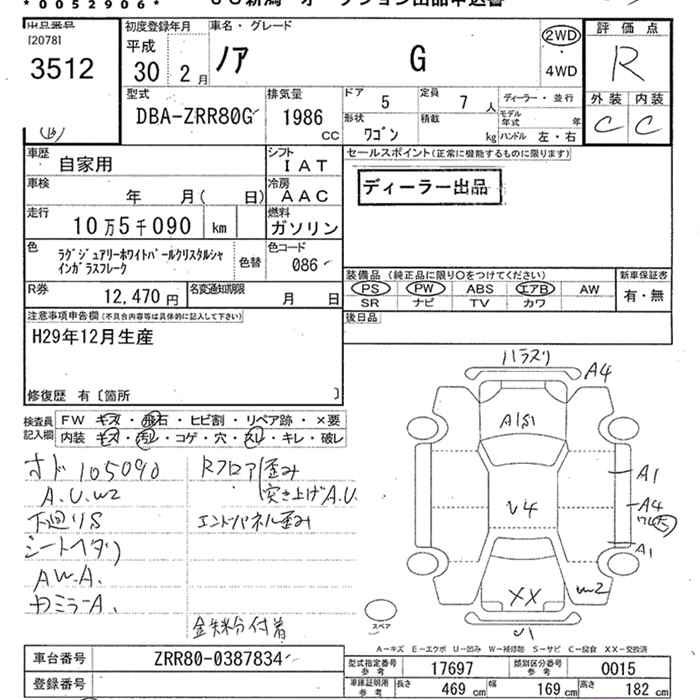 *0052906*
出品番号
[2078]
3512
初度登録年月
平成
30年 2月
車名・グレード
ノア G
2WD
・
4WD
評価点
R
外装 内装
C C
型式
DBA-ZRR80G
排気量
1986
CC
ドア 5
定員 7 人
ディーラー・並行
形状 ワゴン
積載 kg
モデル年式 年
ハンドル 左・右
車歴
自家用
シフト
IAT
車検
年 月( 日)
冷房
AAC
走行
10万5千090 km
燃料
ガソリン
色
ラグジュアリーホワイトパールクリスタルシャ
インガラスフレーク
色替
色コード
086
R券
12,470 円
名変通知期限
月 日
セールスポイント(正常に機能するものに限ります)
ディーラー出品
装備品(純正品に限り○をつけてください)
PS PW ABS エアB AW
SR ナビ TV カワ
新車保証書
有・無
後日品
注意事項申告欄(不具合内容等は具体的に記入して下さい)
H29年12月生産
修復歴 有〔箇所 〕
検査員
記入欄
FW キズ・飛石・ヒビ割・リペア跡・×要
内装 キズ・汚レ・コゲ・穴・スレ・キレ・破レ
オド 105090
A.U.W2
下廻りS
シートヘタリ
AW.A.
カミラーA.
Rフロア 歪み
突き上げA.U.
エンドパネル歪み
金粉付着
A4
A1S1
A1
A4
A1
V4
W2
XX
スペア
A-キズ E-エクボ U-凹み W-補修跡 S-サビ C-腐食 XX-交換済
車台番号
ZRR80-0387834
登録番号
型式指定番号
参考
17697
類別区分番号
参考
0015
車庫証明用
参考
長さ 469 cm
幅 169 cm
高さ 182 cm